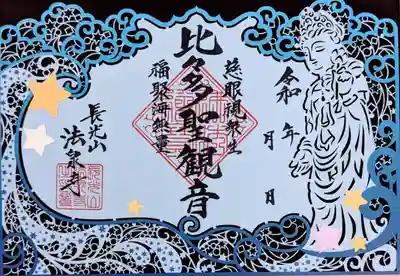 令和 年 月 日
慈眼視衆生
比多聖観音
福聚海無量
長光山
法泉寺